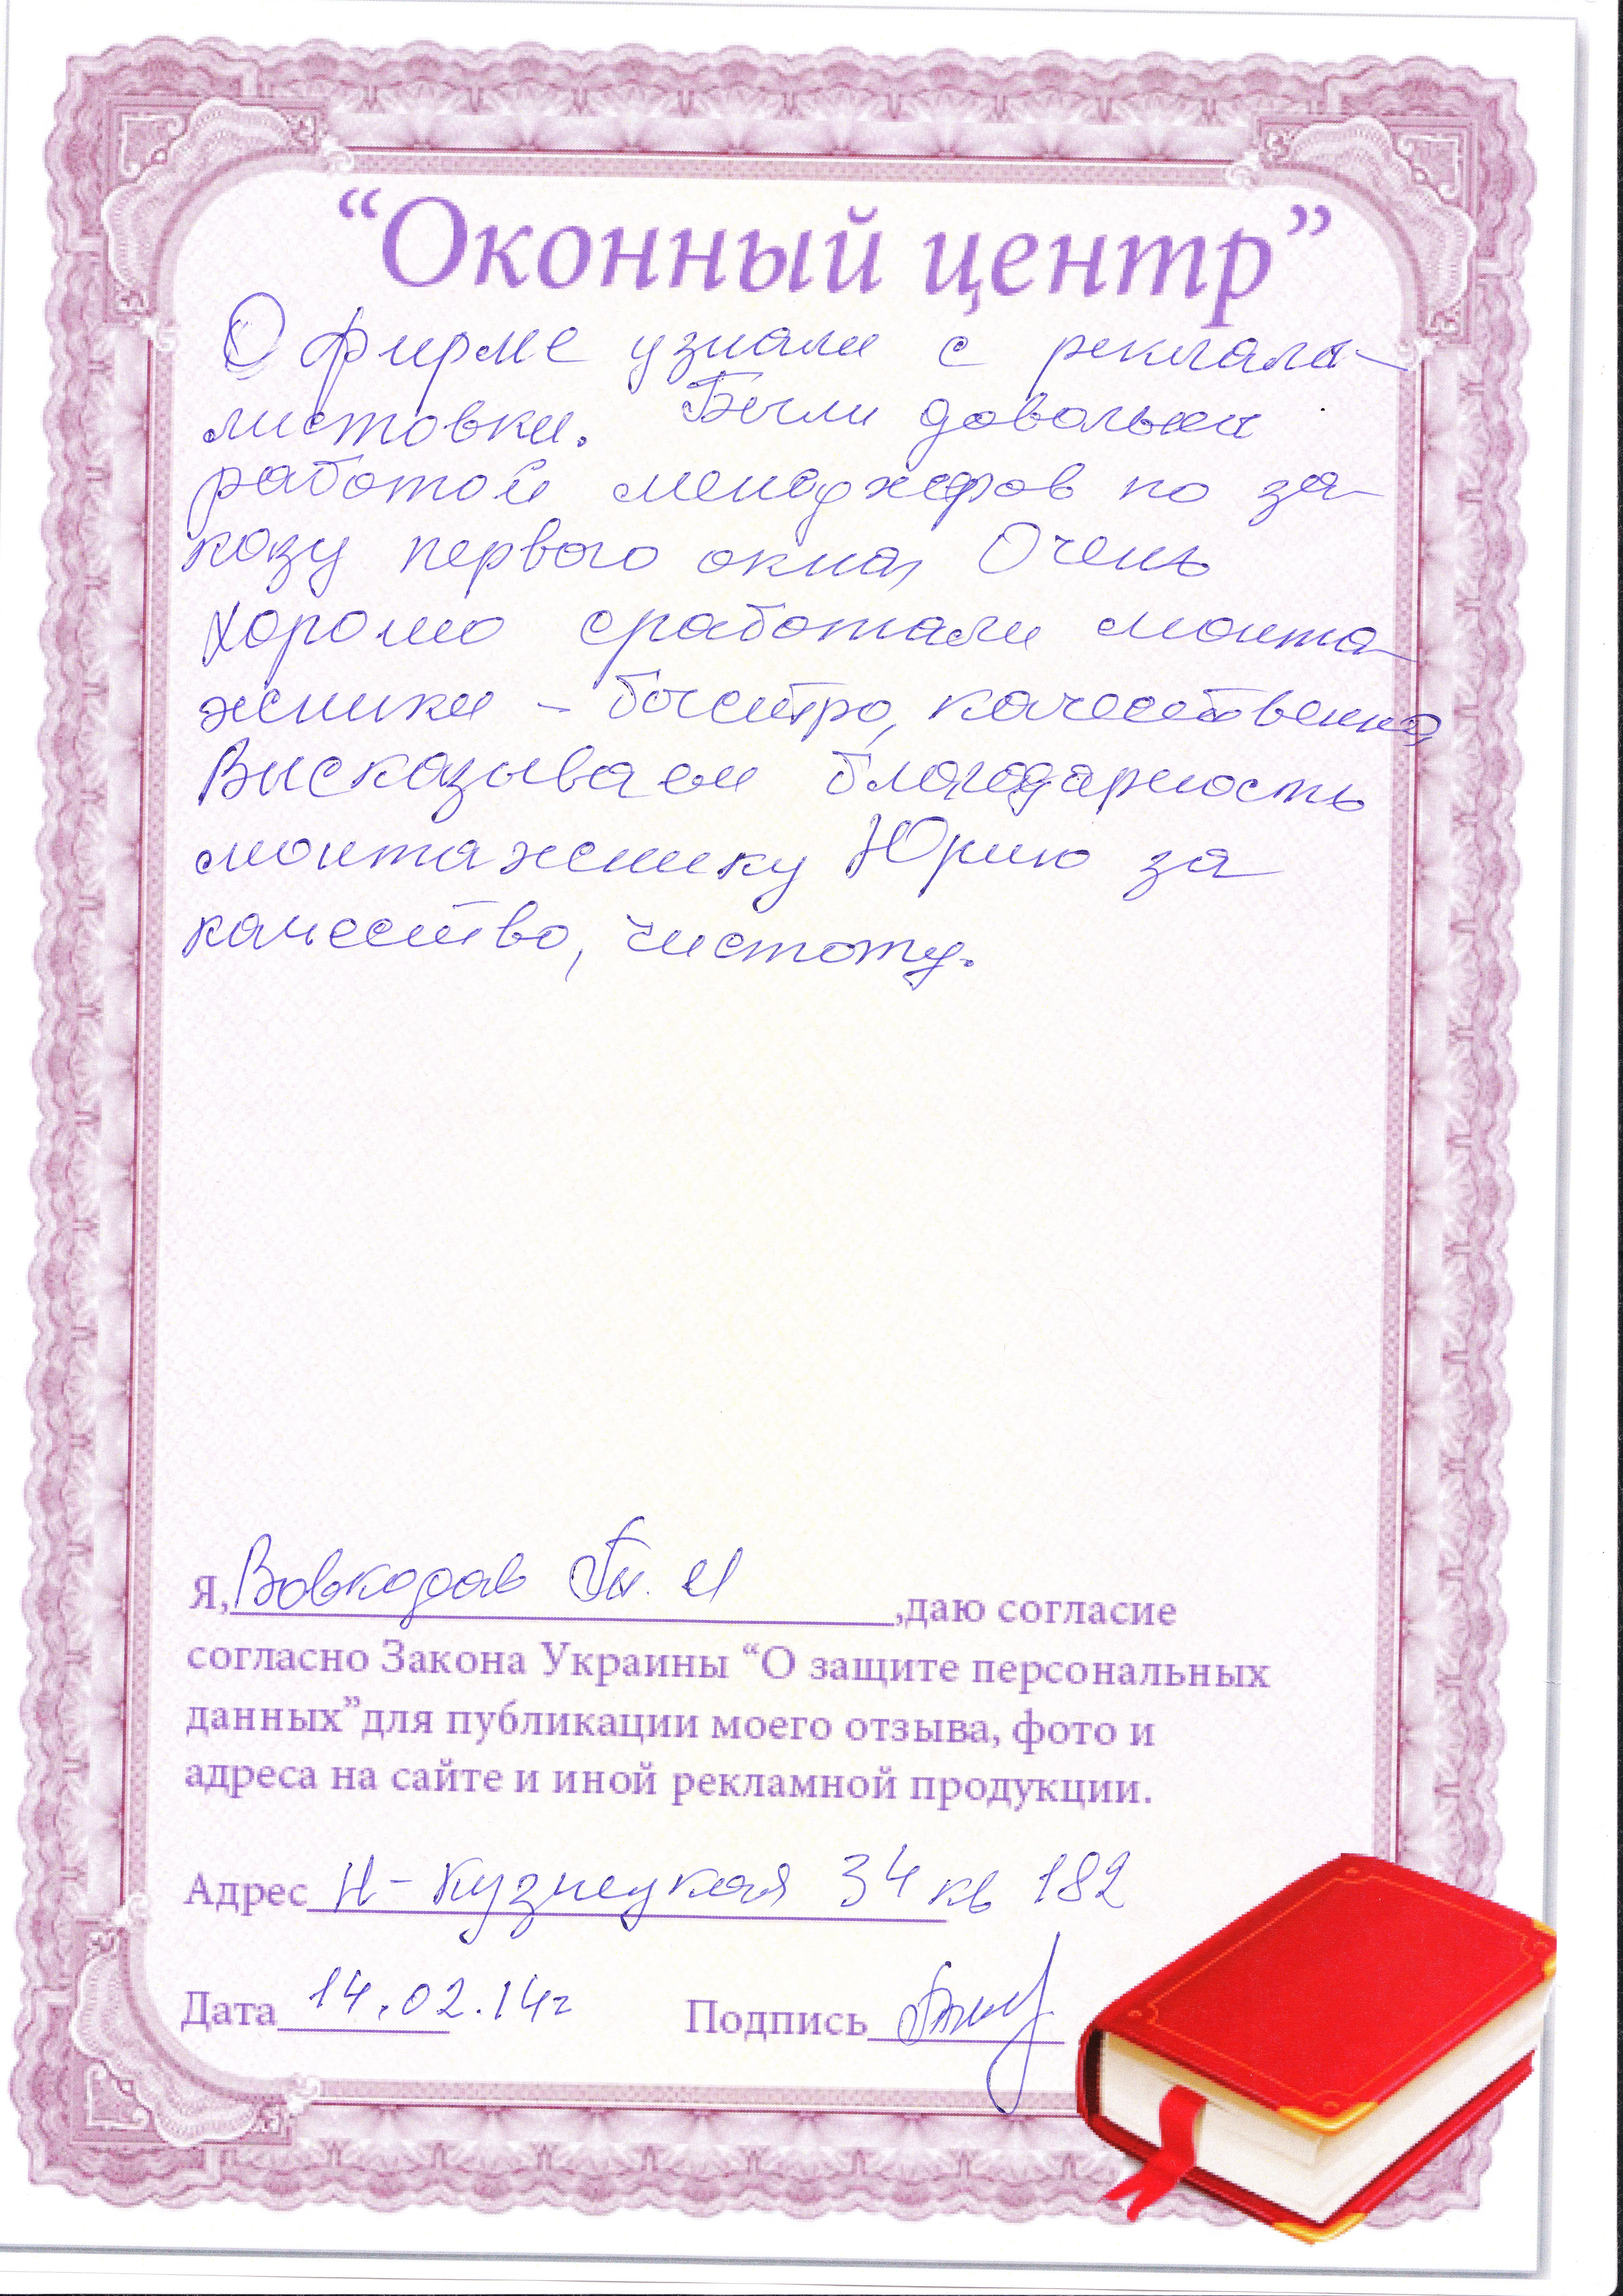 “Оконный центр”
О фирме узнали с реклама-
листовки. Были довольны
работой менеджеров по за-
казу первого окна, Очень
хорошо сработали монта-
жники – быстро, качественно,
Высказываем благодарность
монтажнику Юрию за
качество, чистоту.
Я, Вовкодав И ,даю согласие
согласно Закона Украины “О защите персональных
данных”для публикации моего отзыва, фото и
адреса на сайте и иной рекламной продукции.
Адрес Н-Кузнецкая 34 кв 182
Дата 14.02.14г Подпись